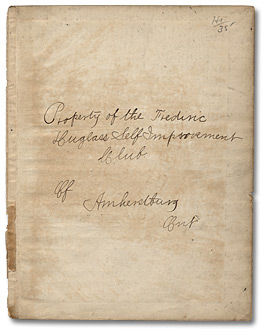 Property of the Frederic
Duglass Self Improvement
Club
Of
Amherstburg
Ont